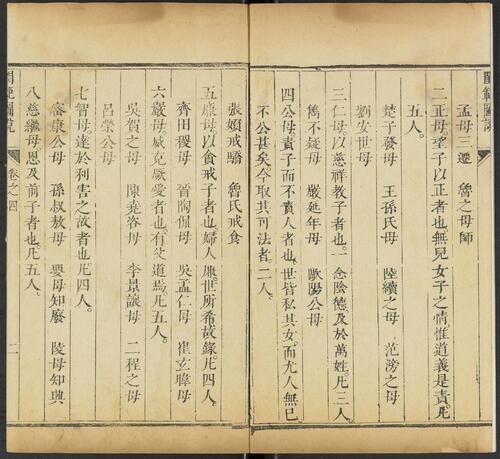 閨範圖說
孟母三遷 魯之母師
二正母望子以正者也無兒女子之情惟道義是責凡
五人。
楚子發母 王孫氏母 陸續之母 范滂之母
劉安世母
三仁母以慈祥教子者也。一念陰德及於萬姓。凡三人
雋不疑母 嚴延年母 歐陽公母
四公母責子而不責人者也。世皆私其女。而尤人無已
不公甚矣。今取其可法者。二人。
張嬇戒驕 魯氏戒食
五廉母以貪戒子者也婦人廉世所希故錄。凡四人。
齊田稷母 晉陶侃母 吳孟仁母 崔玄暐母
六嚴母威克厥愛者也有父道焉凡五人。
吳賀之母 陳堯咨母 李景讓母 二程之母
呂榮公母
七智母達於利害之故者也凡四人。
密康公母 孫叔敖母 嬰母知廢 陵母知興
八慈繼母恩及前子者也凡五人。
閨範圖說 卷之四 二